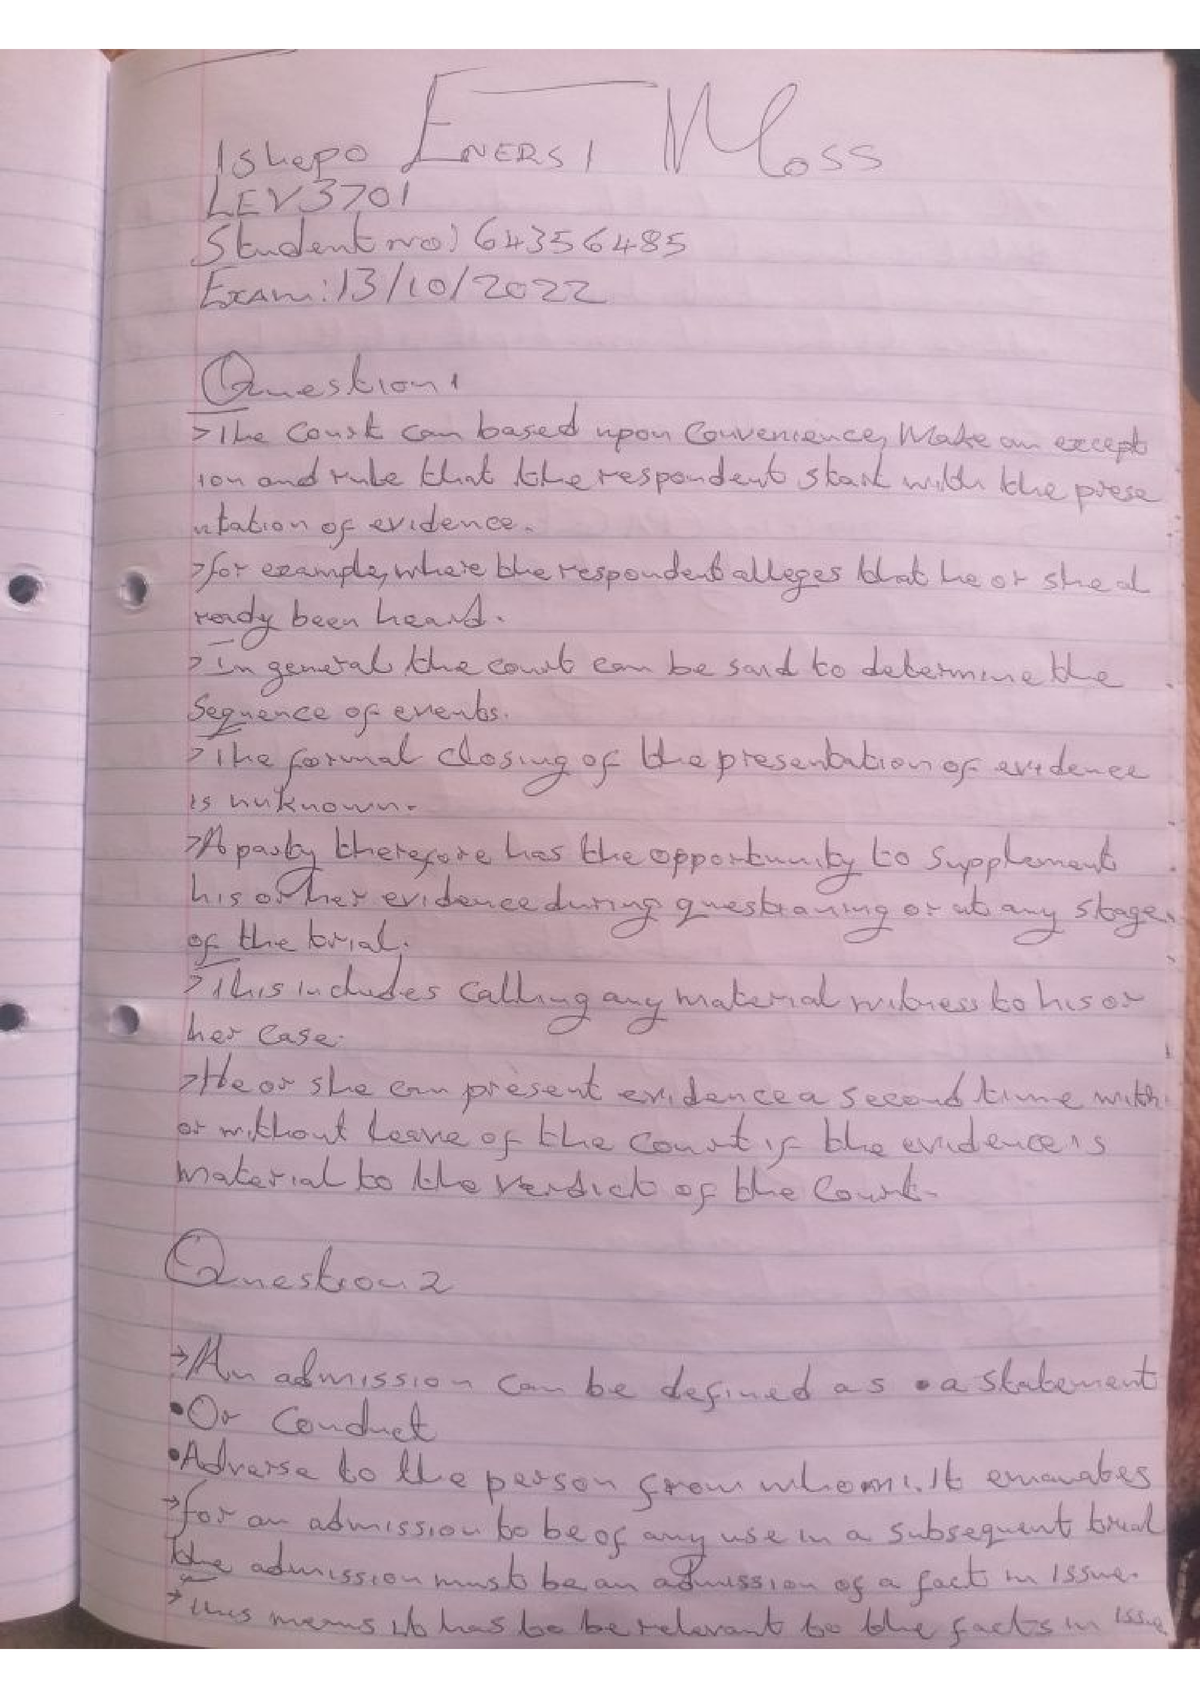 Tshepo ENERSI Moss
LEV3701
Student no: 64356485
Exam: 13/10/2022
Question 1
>The Court can based upon Convenience, Make an except
ion and rule that the respondent start with the prese
ntation of evidence.
>for example, where the respondent alleges that he or she al
ready been heard.
>In general the court can be said to determine the
Sequence of events.
>The formal closing of the presentation of evidence
is unknown.
>A party therefore has the opportunity to supplement
his or her evidence during questioning or at any stage
of the trial.
>This includes calling any material witness to his or
her case.
>He or she can present evidence a second time with
or without leave of the Court if the evidence is
material to the verdict of the Court.
Question 2
→An admission can be defined as •a statement
•Or Conduct
•Adverse to the person from whom it emanates
→for an admission to be of any use in a subsequent trial
the admission must be an admission of a fact in issue.
→This means it has to be relevant to the facts in issue